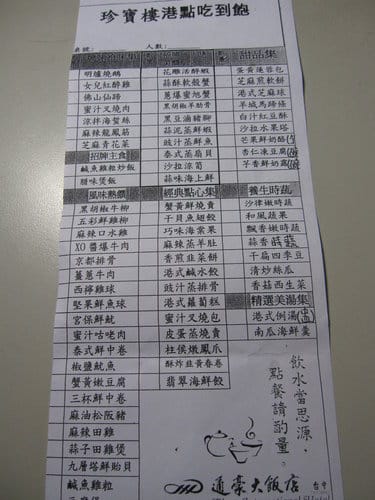 珍寶樓港點吃到飽
桌號:
人數:
明爐燒鵝
女兒紅醉雞
佛山仙蹄
蜜汁叉燒肉
涼拌海蜇絲
麻辣龍鳳筋
芝麻青花菜
招牌主食
鹹魚雞粒炒飯
腊味煲飯
風味熱饌
黑胡椒牛柳
五彩鮮雞柳
麻辣口水雞
XO醬爆牛肉
京都排骨
薑蔥牛肉
西檸雞球
堅果鮮魚球
宮保鮮魷
蜜汁咕咾肉
泰式鮮中卷
椒鹽魷魚
蟹黃嫩豆腐
三杯鮮中卷
麻油松阪豬
麻辣田雞
蒜子田雞煲
九層塔鮮貽貝
鹹魚雞粒
花雕活醉蝦
蒜酥軟殼蟹
蔥爆蜜旭蟹
黑胡椒羊肋骨
黑豆滷豬腳
蒜泥蒸鮮蝦
豉汁蒸鮮魚
泰式蒸扇貝
沙拉涼筍
蒜味海上鮮
經典點心集
蟹黃鮮燒賣
干貝魚翅餃
巧味海棠果
麻辣蒸羊肚
香煎韭菜餅
港式鹹水餃
豉汁蒸排骨
港式蘿蔔糕
蜜汁叉燒包
皮蛋蒸燒賣
柱侯燉鳳爪
酥炸韭黃春卷
翡翠海鮮餃
甜品集
蛋黃蓮蓉包
芝麻煎軟餅
港式芝麻球
羊城馬蹄條
白汁紅豆酥
沙拉水果塔
芒果鮮奶酪
杏仁凍豆腐
芋香鮮奶露
養生時蔬
沙律嫩時蔬
和風蔬果
飄香嫩時蔬
蒜香
干扁四季豆
清炒絲瓜
香菇西生菜
精選美湯集
港式例湯
南瓜海鮮羹
飲水當思源,
點餐請酌量。
通豪大飯店
台中